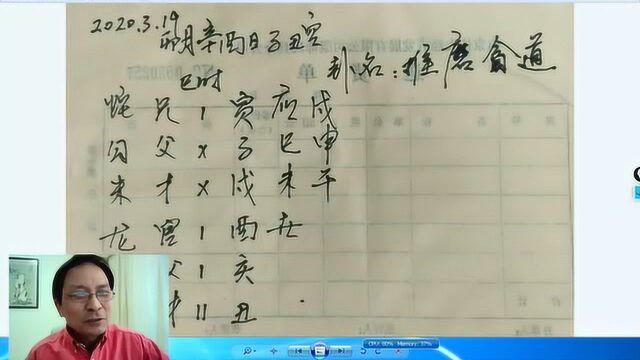 2020.3.19
卯月辛酉日子丑空
卦名：推磨貪道
巳时
蛇 兄 / 寅 应 戌
勾 父 x 子 巳 申
朱 才 x 戌 未 午
龙 官 / 酉 世
父 / 亥
才 // 丑
CPU: 60% Memory: 37%